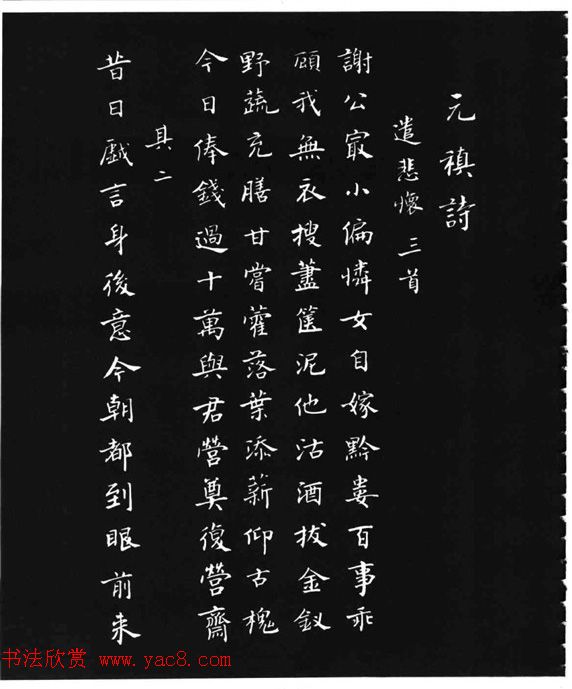 元稹詩
遣悲懷 三首
謝公寂小偏憐女自嫁黔婁百事乖
顧我無衣搜藎篋泥他沽酒拔金釵
野蔬充膳甘嘗藿落葉添薪仰古槐
今日俸錢過十萬與君營奠復營齋
其二
昔日戲言身後意今朝都到眼前来
书法欣赏 www.yac8.com